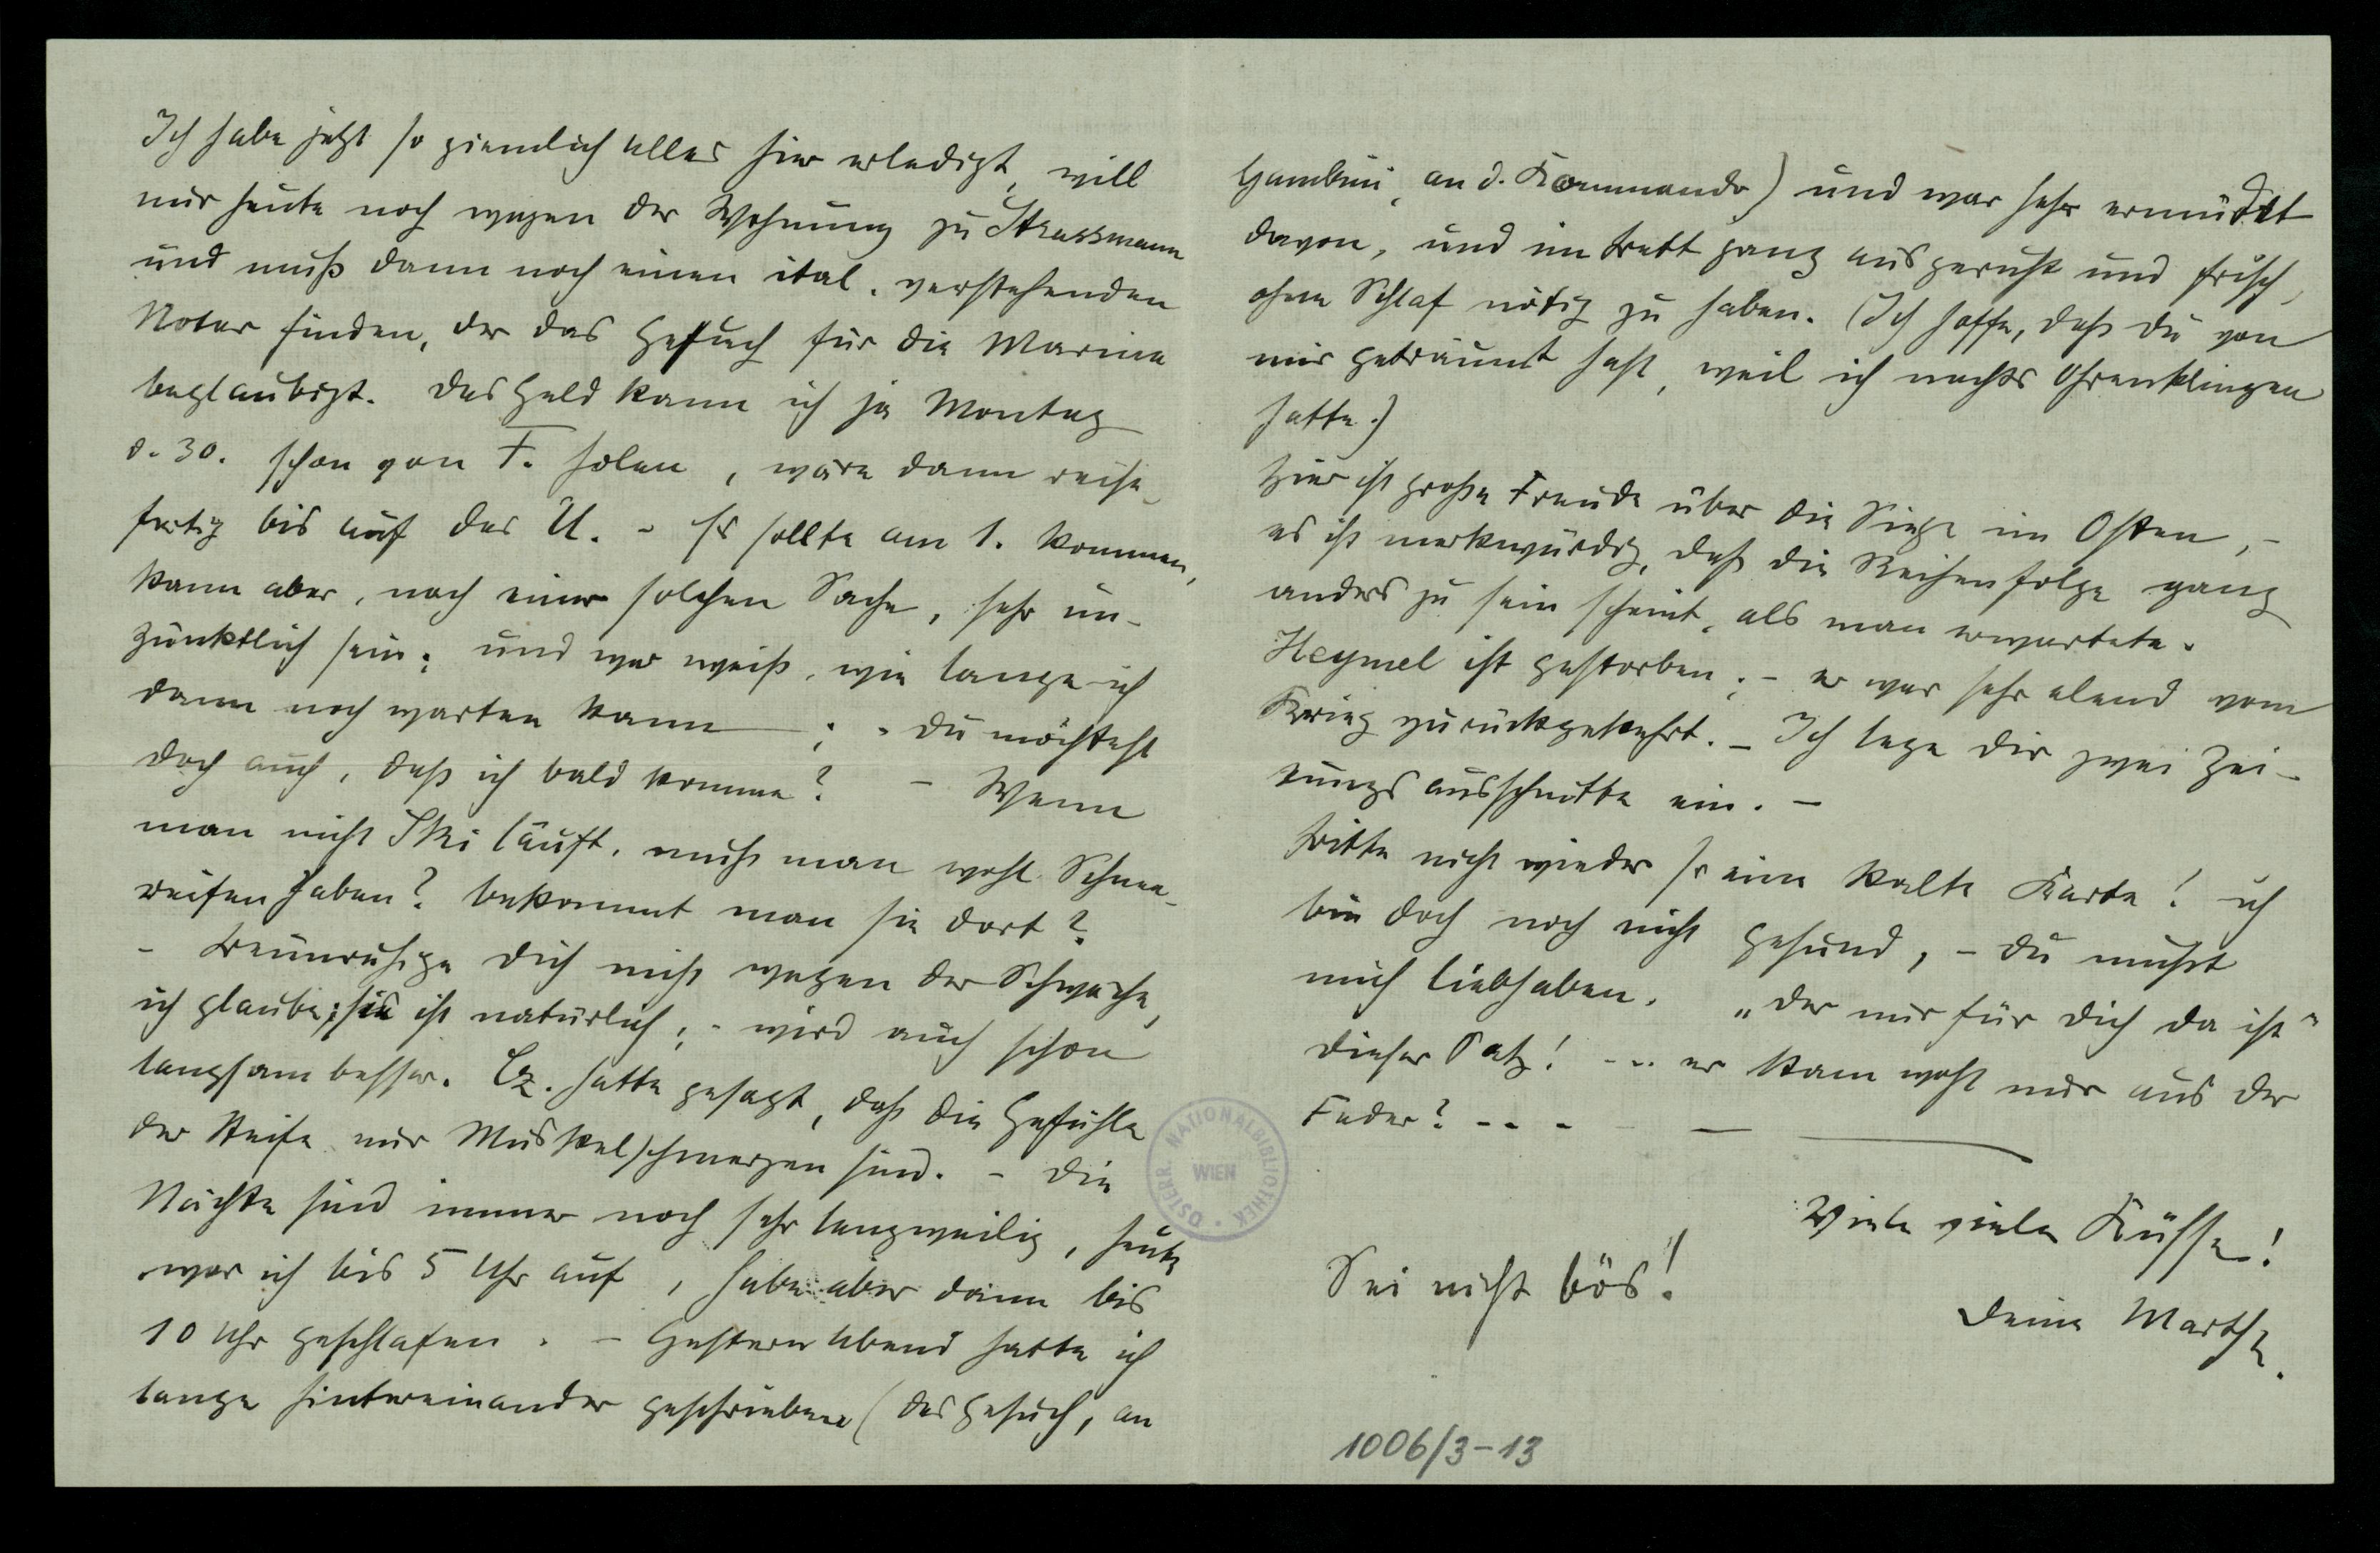 Ich habe jetzt so ziemlich alles hier erledigt, will
nur heute noch wegen der Wohnung zu Strassmann
und muß dann noch einen ital. verstehenden
Notar finden, der das Gesuch für die Marine
beglaubigt. Das Geld kann ich ja Montag
d. 30. schon von F. holen, wäre dann reise-
fertig bis auf das U. - Es sollte am 1. kommen,
kann aber, nach einer solchen Sache, sehr un-
pünktlich sein; und wer weiß, wie lange ich
dann noch warten kann; - Du möchtest
doch auch, daß ich bald komme? - Wenn
man nicht Ski läuft, muß man wohl Schnee-
reifen haben? bekommt man sie dort?
- Beunruhige Dich nicht wegen der Schwäche,
ich glaube; sie ist natürlich; - wird auch schon
langsam besser. Cz. hatte gesagt, daß die Gefühle
der Steife nur Muskelschmerzen sind. - Die
Nächte sind immer noch sehr langweilig, heute
war ich bis 5 Uhr auf, habe aber dann bis
10 Uhr geschlafen. - Gestern Abend hatte ich
lange hintereinander geschrieben (das Gesuch, an
Gambini, an d. Kommando) und war sehr ermüdet
davon, und im Bett ganz ausgeruht und frisch,
ohne Schlaf nötig zu haben. (Ich hoffe, daß Du von
mir geträumt hast, weil ich nachts Ohrenklingen
hatte.)
Hier ist große Freude über die Siege im Osten, -
es ist merkwürdig, daß die Reihenfolge ganz
anders zu sein scheint, als man erwartete.
Heymel ist gestorben; - er war sehr elend vom
Krieg zurückgekehrt. - Ich lege Dir zwei Zei-
tungsausschnitte ein. -
Bitte nicht wieder so eine kalte Karte! ich
bin doch noch nicht gesund, - Du mußt
mich liebhaben. „der nur für Dich da ist"
dieser Satz! - .. er kam wohl nur aus der
Feder? - - - - —
Viele viele Küsse!
Sei nicht bös!
Deine Marthe.
1006/3-13
ÖSTERR. NATIONALBIBLIOTHEK
WIEN